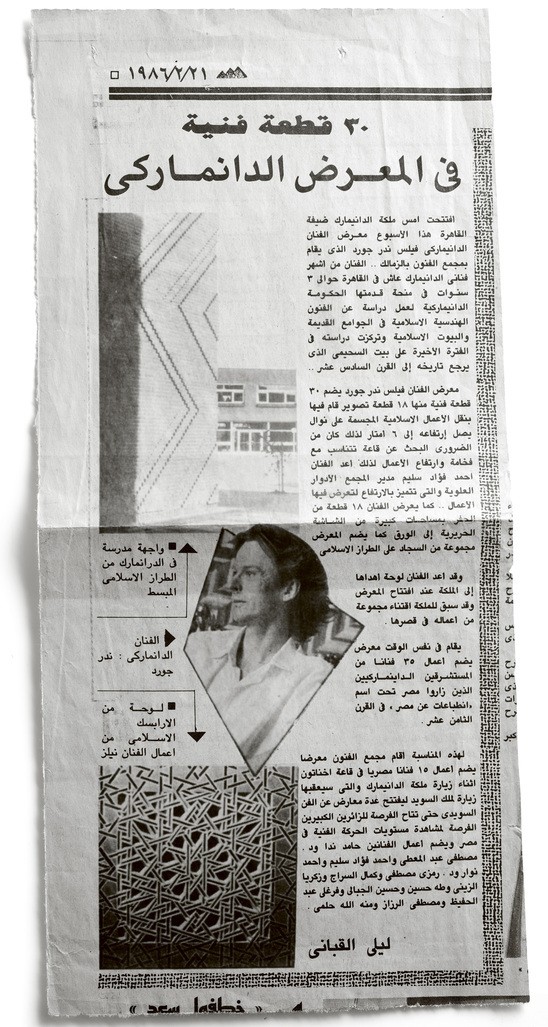 ١٩٨٦/٢/٢١
٣٠ قطعة فنية
فى المعرض الدانماركى
افتتحت امس ملكة الدانيمارك ضيفة
القاهرة هذا الأسبوع معرض الفنان
الدانيماركى فيلس ندر جورد الذى يقام
بمجمع الفنون بالزمالك .. الفنان من اشهر
فنانى الدانيمارك عاش فى القاهرة حوالى ٣
سنوات فى منحة قدمتها الحكومة
الدانيماركية لعمل دراسة عن الفنون
الهندسية الاسلامية فى الجوامع القديمة
والبيوت الاسلامية وتركزت دراسته فى
الفترة الأخيرة على بيت السحيمى الذى
يرجع تاريخه إلى القرن السادس عشر ..
معرض الفنان فيلس ندر جورد يضم ٣٠
قطعة فنية منها ١٨ قطعة تصوير قام فيها
بنقل الأعمال الاسلامية المجسمة على نوال
يصل إرتفاعه إلى ٦ امتار لذلك كان من
الضرورى البحث عن قاعة تتناسب مع
فخامة وارتفاع الأعمال لذلك أعد الفنان
احمد فؤاد سليم مدير المجمع الأدوار
العلوية والتى تتميز بالارتفاع لتعرض فيها
الأعمال .. كما يعرض الفنان ١٨ قطعة من
الحفر بمساحات كبيرة من الشاشة
الحريرية إلى الورق كما يضم المعرض
مجموعة من السجاد على الطراز الاسلامى
وقد اعد الفنان لوحة اهداها
إلى الملكة عند افتتاح المعرض
وقد سبق للملكة اقتناء مجموعة
من اعماله فى قصرها .
يقام فى نفس الوقت معرض
يضم اعمال ٣٥ فنانا من
المستشرقين الداينماركيين
الذين زاروا مصر تحت اسم
«انطباعات عن مصر» فى القرن
الثامن عشر .
لهذه المناسبة أقام مجمع الفنون معرضا
يضم اعمال ١٥ فنانا مصريا فى قاعة اخناتون
اثناء زيارة ملكة الدانيمارك والتى سيعقبها
زيارة لملك السويد ليفتتح عدة معارض عن الفن
السويدى حتى تتاح الفرصة للزائرين الكبيرين
الفرصة لمشاهدة مستويات الحركة الفنية فى
مصر ويضم اعمال الفنانين حامد ندا ود .
مصطفى عبد المعطى واحمد فؤاد سليم واحمد
نوار ود . رمزى مصطفى وكمال السراج وزكريا
الزينى وطه حسين وحسين الجبالى وفرغلى عبد
الحفيظ ومصطفى الرزاز ومنه الله حلمى .
ليلى القبانى
واجهة مدرسة
فى الدرانمارك من
الطراز الاسلامى
المبسط
الفنان
الدانماركى : ندر
جورد
لوحة من
الارابسك
الاسلامى من
اعمال الفنان نيلز